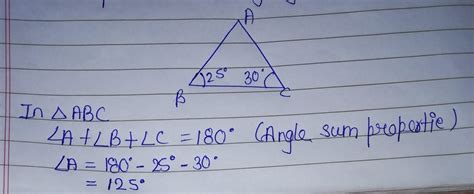 A
25° 30°
B C
In △ABC
∠A+∠B+∠C = 180° (Angle sum propertie)
∠A = 180° - 25° - 30°
= 125°